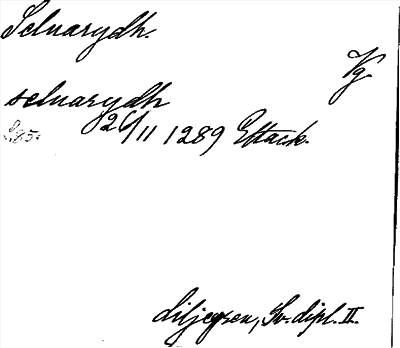 Seluarydh.
Vg.
seluarydh
S. 85. 26/11 1289 Eftack.
Liljegren, Sv. dipl. II.